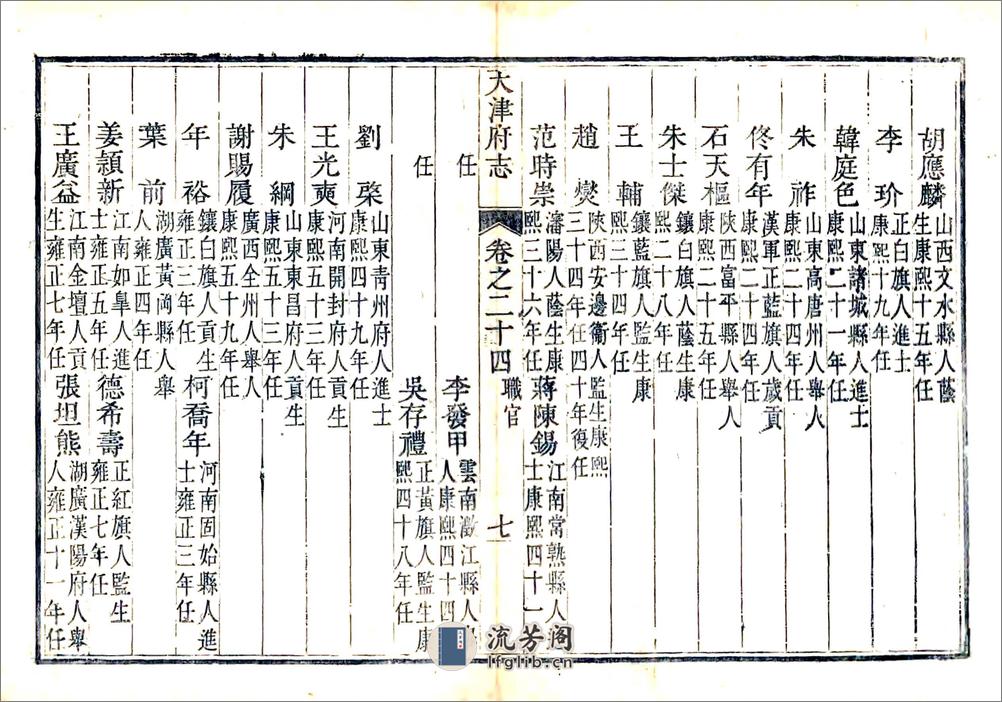 胡應麟 山西文水縣人蔭生康熙十五年任
李 玠 正白旗人進士康熙十九年任
韓庭色 山東諸城縣人進士康熙二十一年任
朱 祚 山東高唐州人舉人康熙二十四年任
佟有年 漢軍正藍旗人歲貢康熙二十四年任
石天樞 陝西富平縣人舉人康熙二十五年任
朱士傑 鑲白旗人蔭生康熙二十八年任
王 輔 鑲藍旗人監生康熙三十四年任
趙 爕 陝西安邊衛人監生康熙三十四年任四十年復任
范時崇 瀋陽人蔭生康熙三十六年任 蔣陳錫 江南常熟縣人士康熙四十一
大津府志 卷之二十四 職官 七
任 李發甲 雲南澂江縣人人康熙四十四
任 吳存禮 正黃旗人監生康熙四十八年任
劉 棨 山東靑州府人進士康熙四十九年任
王光奭 河南開封府人貢生康熙五十三年任
朱 綱 山東東昌府人貢生康熙五十三年任
謝賜履 廣西全州人舉人康熙五十九年任
年 裕 鑲白旗人貢生雍正三年任 柯喬年 河南固始縣人進士雍正三年任
葉 前 湖廣黃岡縣舉人雍正四年任
姜頴新 江南如臯人進士雍正五年任 德希壽 正紅旗人監生雍正七年任
王廣益 江南金壇人貢生雍正七年任 張坦熊 湖廣漢陽府人舉人雍正十一年任
流芳閣
lfglib.cn